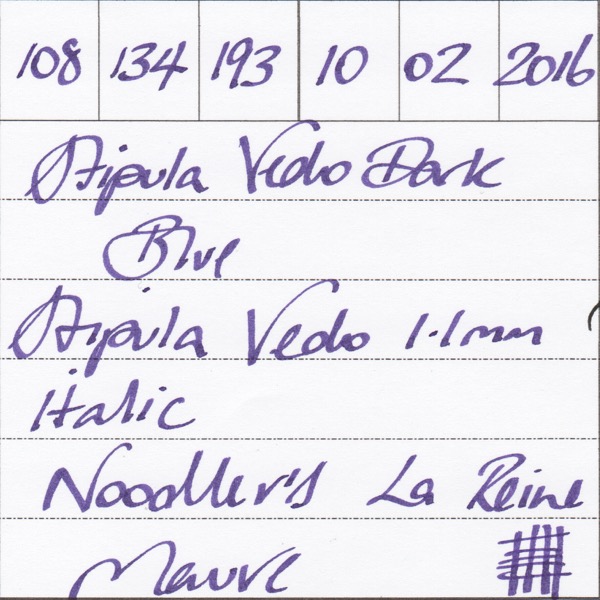 108 134 193 10 02 2016
Stipula Vedo Dark
Blue
Stipula Vedo 1.1mm
italic
Noodler's La Reine
Mauve